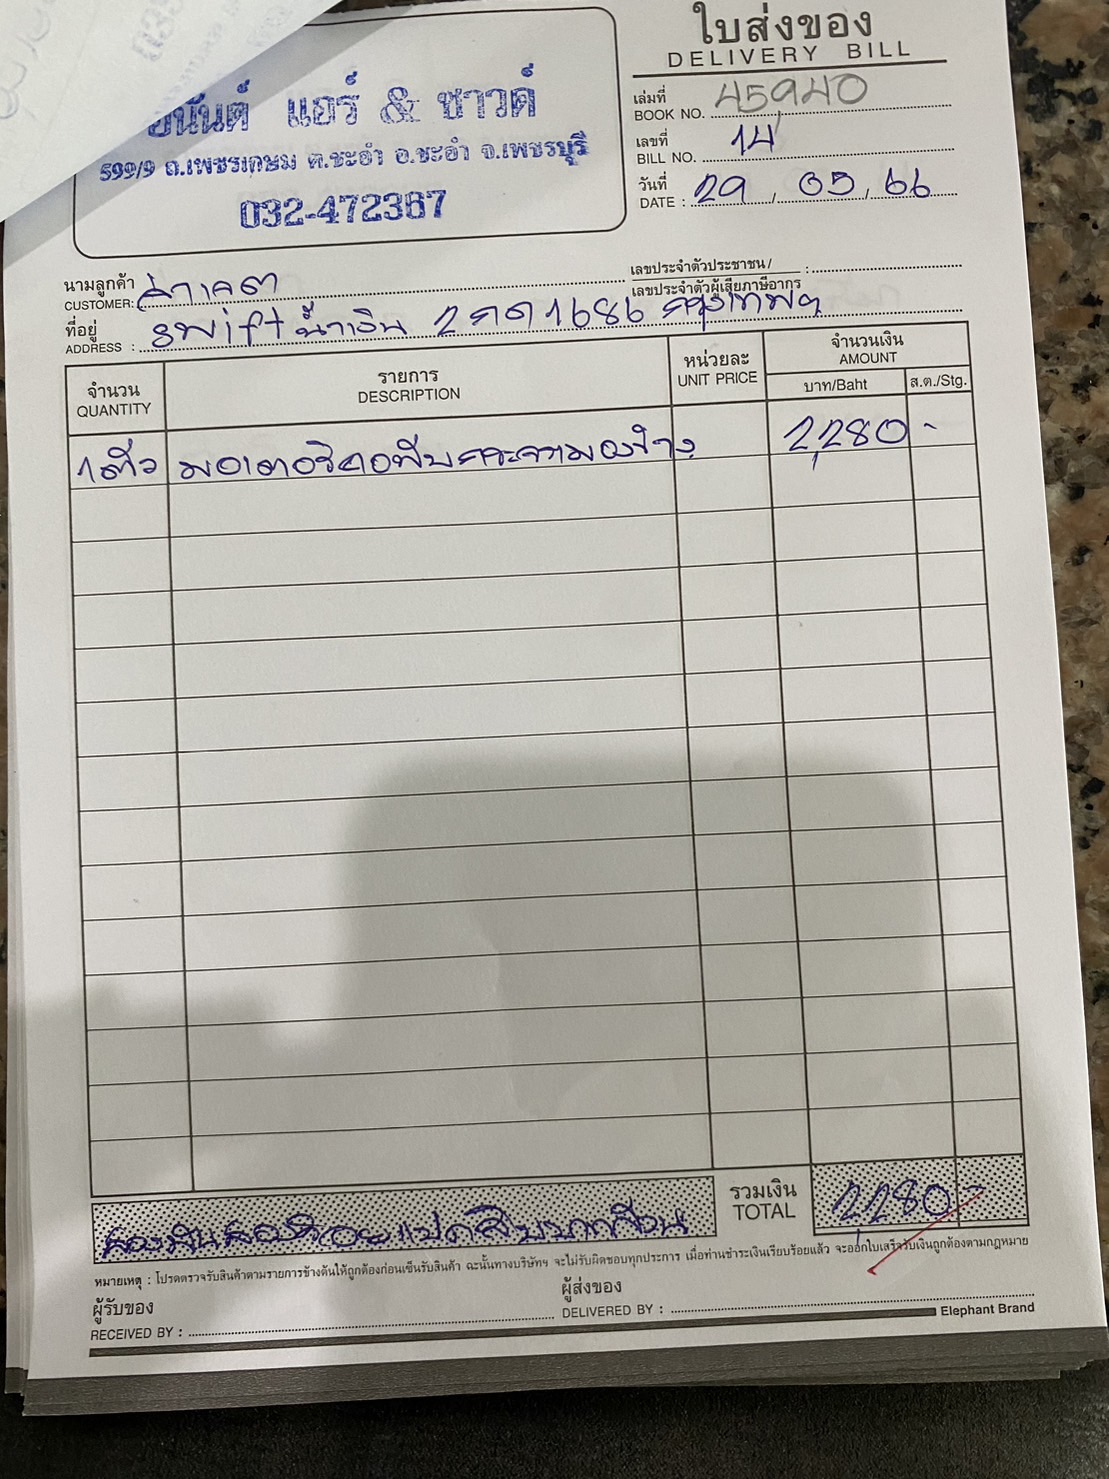 ใบส่งของ
DELIVERY BILL
อนันต์ แอร์ & ซาวด์
599/9 ถ.เพชรเกษม ต.ชะอำ อ.ชะอำ จ.เพชรบุรี
032-472367
เล่มที่
BOOK NO. 45940
เลขที่
BILL NO. 14
วันที่
DATE : 29 / 05 / 66
นามลูกค้า
CUSTOMER:
เลขประจำตัวประชาชน/
เลขประจำตัวผู้เสียภาษีอากร :
ที่อยู่
ADDRESS : swift น้ำเงิน 2กด1686 กรุงเทพฯ
จำนวน
QUANTITY
รายการ
DESCRIPTION
หน่วยละ
UNIT PRICE
จำนวนเงิน
AMOUNT
บาท/Baht ส.ต./Stg.
1 ตัว มอเตอร์คอพับกระจกมองข้าง 2,280 -
สองพันสองร้อยแปดสิบบาทถ้วน
รวมเงิน
TOTAL
2,280 -
หมายเหตุ : โปรดตรวจรับสินค้าตามรายการข้างต้นให้ถูกต้องก่อนเซ็นรับสินค้า ฉะนั้นทางบริษัทฯ จะไม่รับผิดชอบทุกประการ เมื่อท่านชำระเงินเรียบร้อยแล้ว จะออกใบเสร็จรับเงินถูกต้องตามกฎหมาย
ผู้รับของ
RECEIVED BY :
ผู้ส่งของ
DELIVERED BY :
Elephant Brand